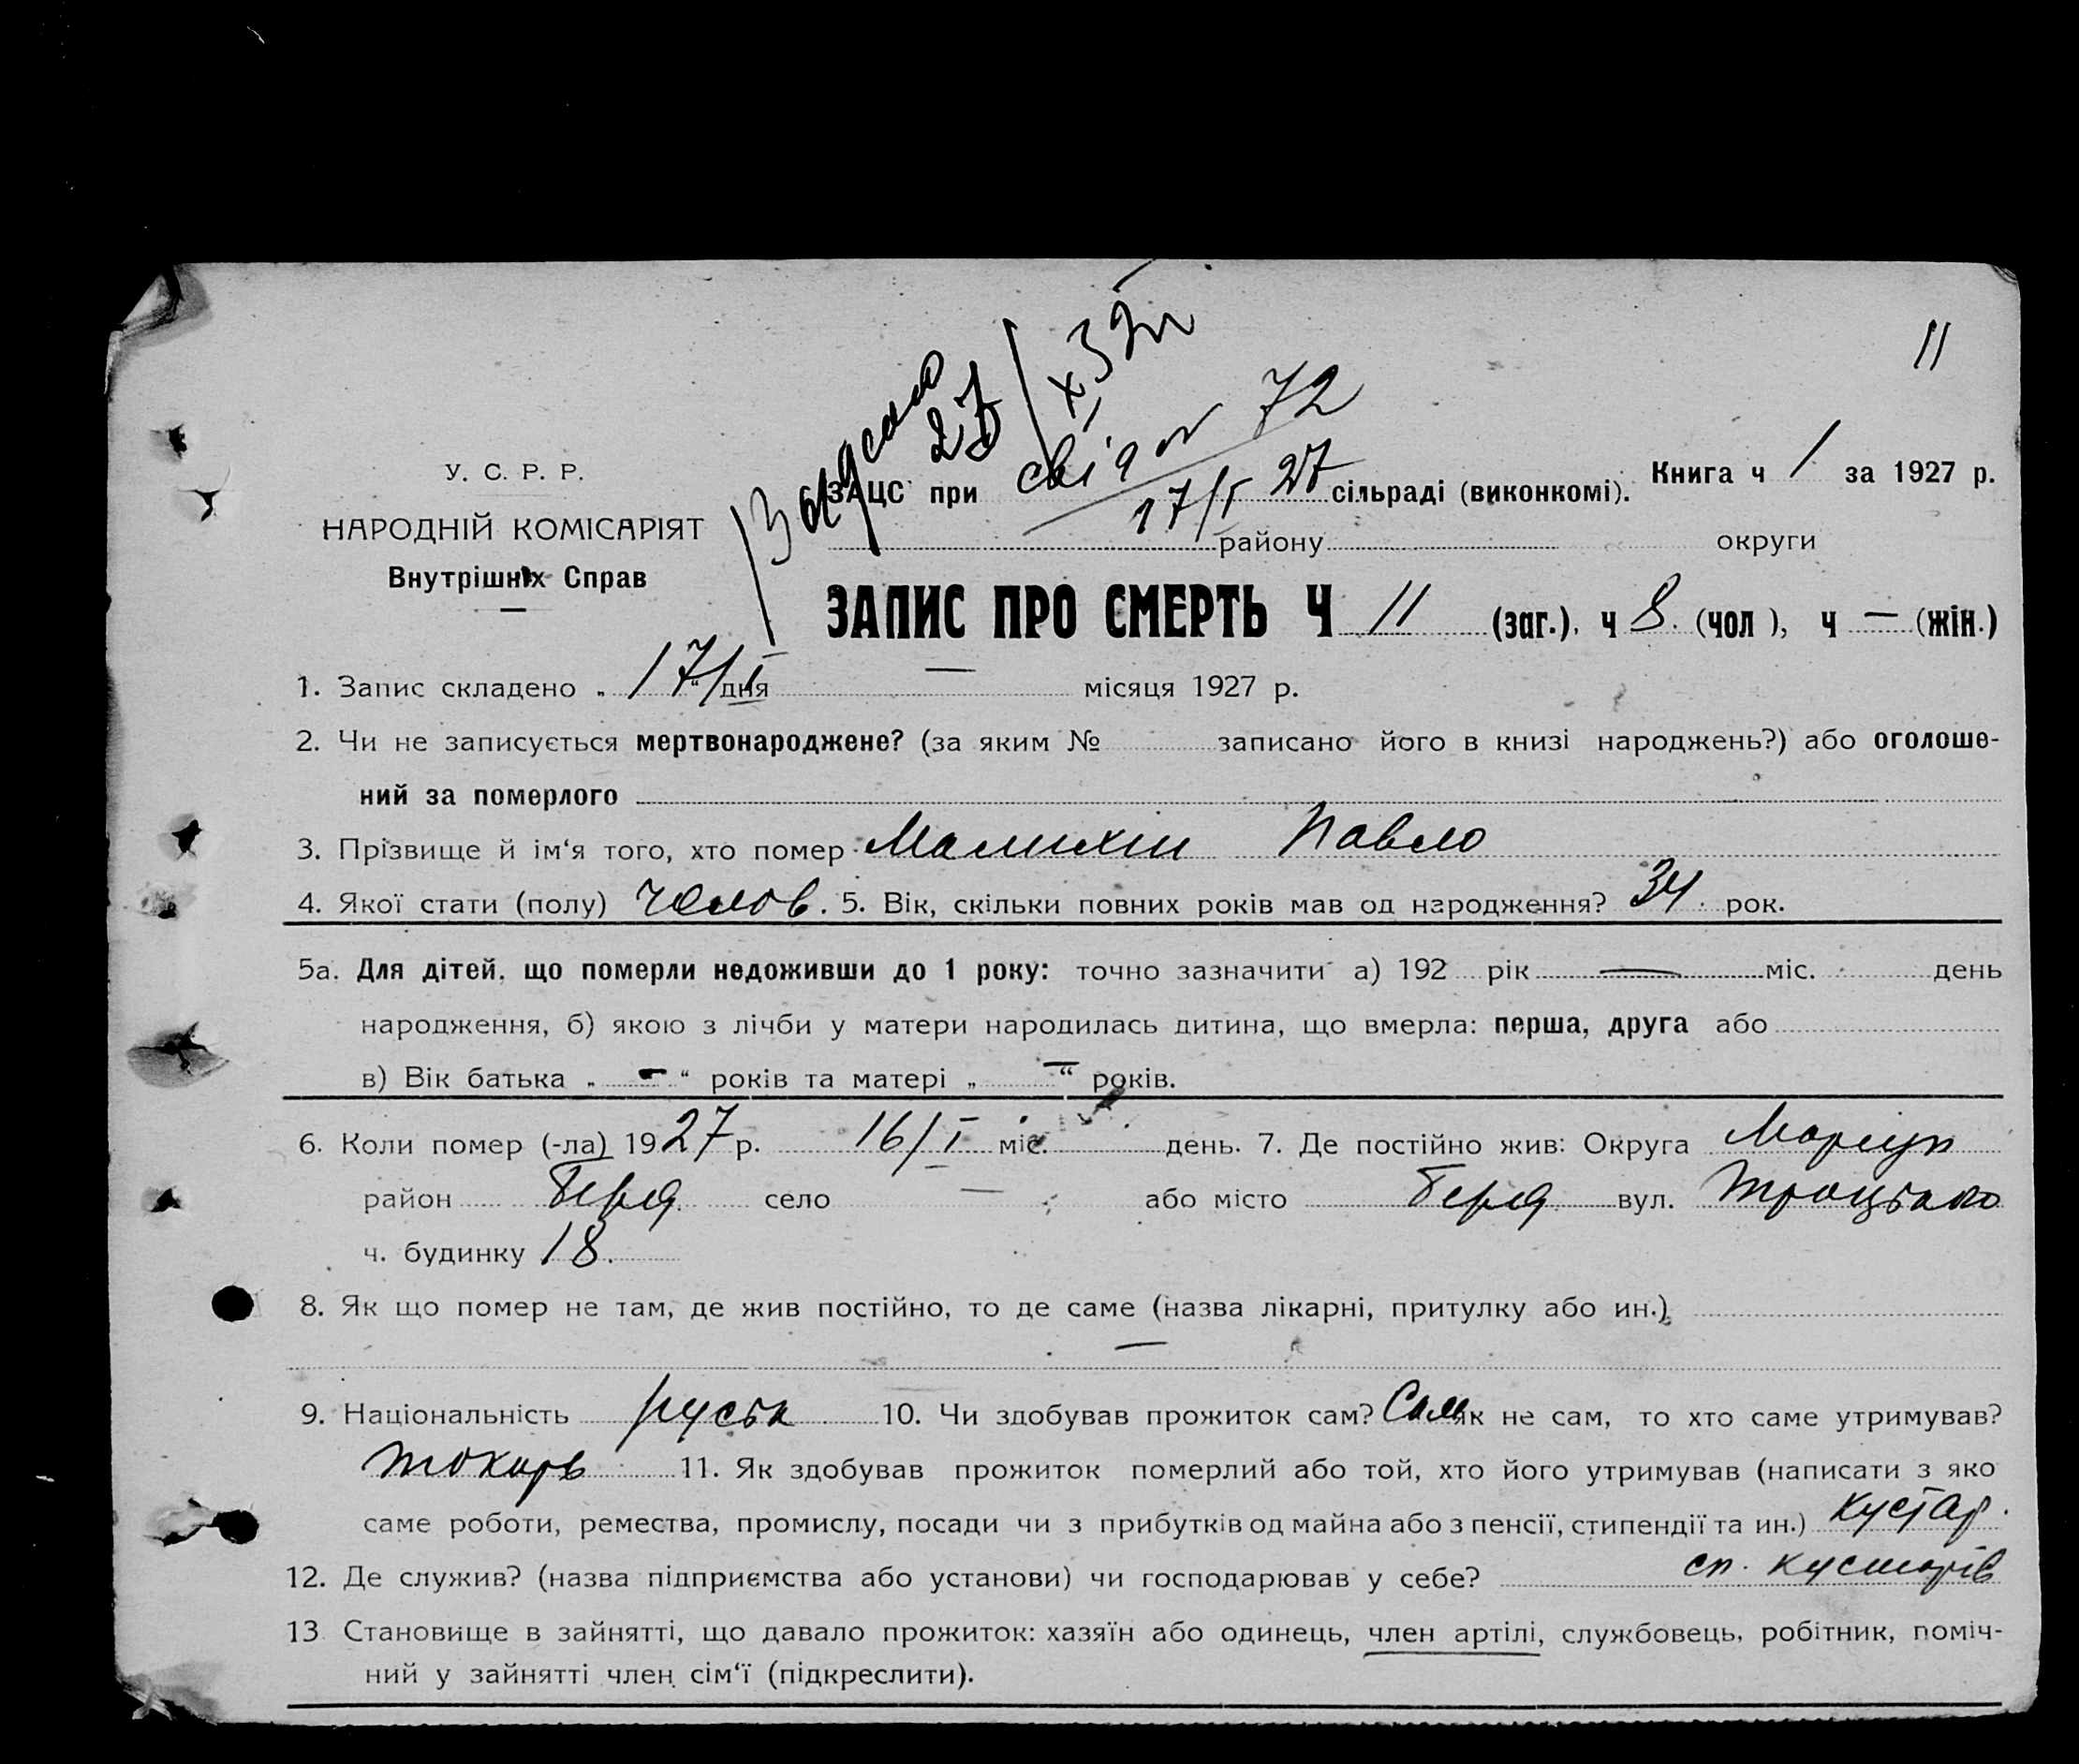 11
Видано 27/X 32
свідот 72
17/I 27
У. С. Р. Р.
НАРОДНІЙ КОМІСАРІЯТ
Внутрішніх Справ
ЗАЦС при сільраді (виконкомі). Книга ч 1 за 1927 р.
району округи
ЗАПИС ПРО СМЕРТЬ Ч 11 (заг.), ч 8. (чол), ч — (жін.)
1. Запис складено „ 17/I “ дня — місяця 1927 р.
2. Чи не записується мертвонароджене? (за яким № записано його в книзі народжень?) або оголоше-
ний за померлого
3. Прізвище й ім‘я того, хто помер Малихін Павло
4. Якої стати (полу) челов. 5. Вік, скільки повних років мав од народження? 34 рок.
5а. Для дітей, що померли недоживши до 1 року: точно зазначити а) 192 рік — міс. день
народження, б) якою з лічби у матери народилась дитина, що вмерла: перша, друга або
в) Вік батька „ — “ років та матері „ — “ років.
6. Коли помер (-ла) 1927 р. 16/I міс. день. 7. Де постійно жив: Округа Маріуп
район Берд. село — або місто Берд. вул. Троцького
ч. будинку 18.
8. Як що помер не там, де жив постійно, то де саме (назва лікарні, притулку або ин.)
—
9. Національність руськ 10. Чи здобував прожиток сам? Сам як не сам, то хто саме утримував?
токарь 11. Як здобував прожиток померлий або той, хто його утримував (написати з яко
саме роботи, ремества, промислу, посади чи з прибутків од майна або з пенсії, стипендії та ин.) кустар.
12. Де служив? (назва підприємства або установи) чи господарював у себе? сп. кустарів
13 Становище в зайнятті, що давало прожиток: хазяїн або одинець, член артілі, службовець, робітник, поміч-
ний у зайнятті член сім‘ї (підкреслити).